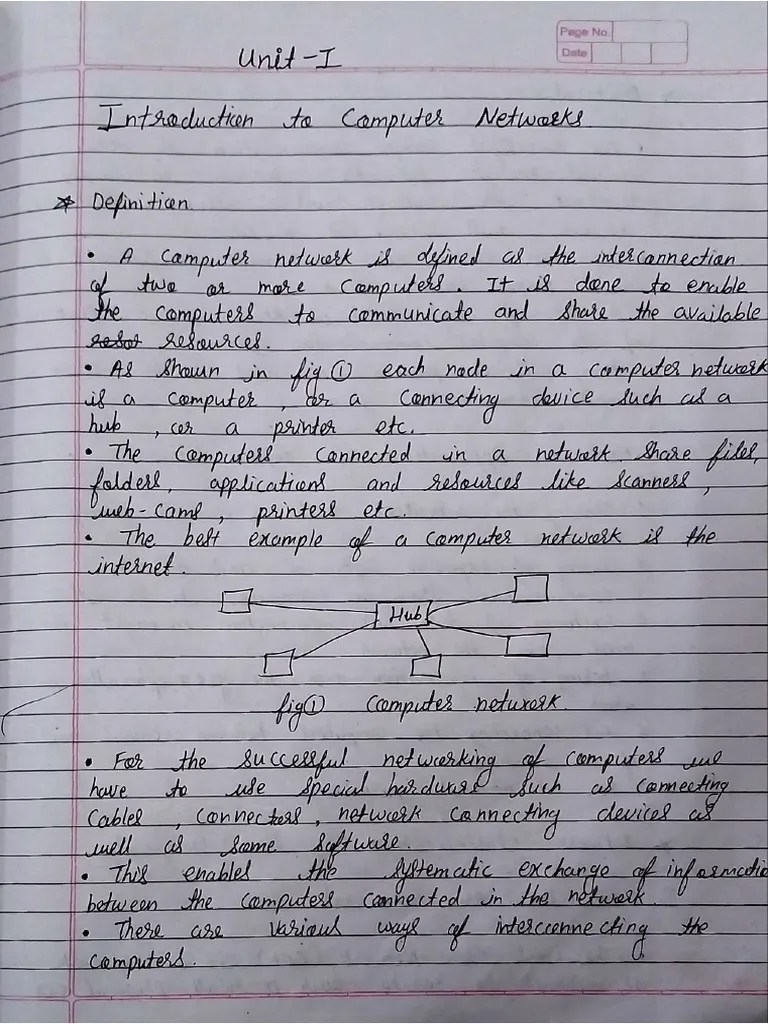 Page No.
Date
Unit-I
Introduction to Computer Networks
* Definition
• A computer network is defined as the interconnection
of two or more computers. It is done to enable
the computers to communicate and share the available
resources.
• As shown in fig ① each node in a computer network
is a computer, or a connecting device such as a
hub, or a printer etc.
• The computers connected in a network share files,
folders, applications and resources like scanners,
web-cams, printers etc.
• The best example of a computer network is the
internet.
Hub
fig① Computer network.
• For the successful networking of computers we
have to use special hardware such as connecting
cables, connectors, network connecting devices as
well as some software.
• This enables the systematic exchange of informatio
between the computers connected in the network.
• There are various ways of interconnecting the
computers.